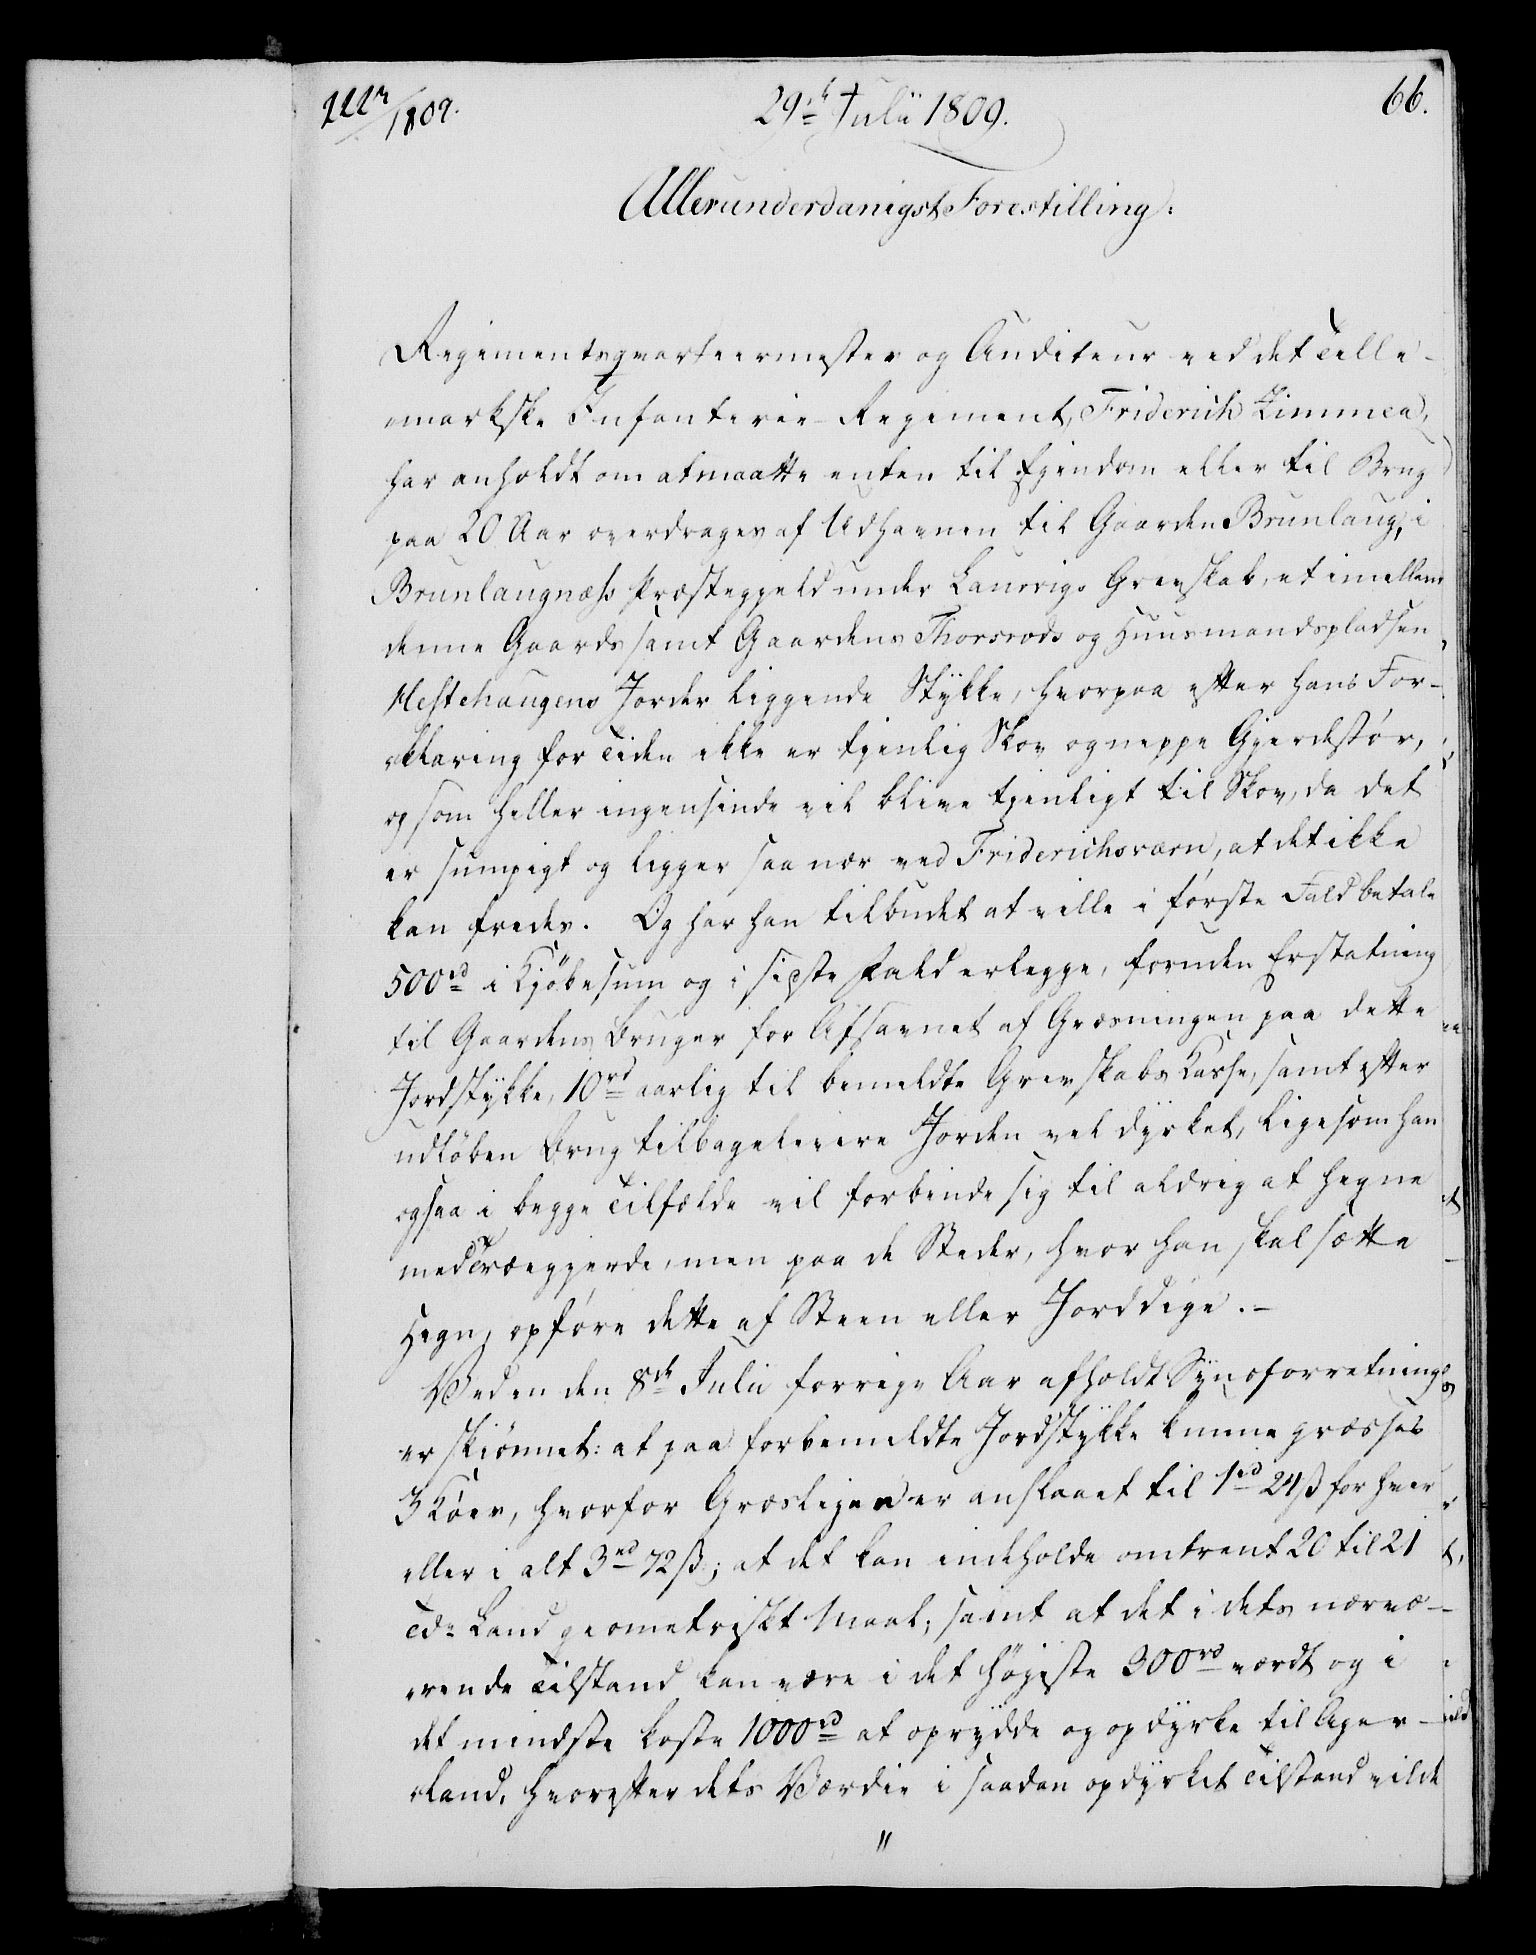 29de Julii 1809.
66.
Allerunderdanigst Forestilling:
Regimentsqvarteermester og Auditeur ved det Telle-
markske Infanterie-Regiment, Friderich Zimmer,
har anholdt om at maatte enten til Ejendom eller til Brug
paa 20 Aar overdrages af Udhavnen til Gaarden Brunlaug, i
Brunlaugnæss Præstegjeld under Laurvigs Grevskab, et imellem
denne Gaards samt Gaardens Thorsrods og Huusmandspladsen
Hestehaugens Jorder liggende Stykke, hvorpaa efter hans For-
klaring for Tiden ikke er tjenlig Skov og neppe Gjerdestør,
og som heller ingensinde vil blive tjenligt til Skov, da det
er sumpigt og ligger saa nær ved Friderichsværn, at det ikke
kan fredes. Og har han tilbudet at ville i første Fald betale
500rd i Kjøbesum og i sidste Fald erlegge, foruden Erstatning
til Gaardens Bruger for Afsavnet af Græsningen paa dette
Jordstykke, 10rd aarlig til bemeldte Grevskabs Kasse, samt efter
udløben Brug tilbagelevere Jorden vel dyrket, ligesom han
ogsaa i begge Tilfælde vil forbinde sig til aldrig at hegne
med Trægjerde, men paa de Steder, hvor han skal sætte
Hegn, opføre dette af Steen eller Jorddige.-
Ved en den 8de Julii forrige Aar afholdt Synsforretning
er skiønnet: at paa forbemeldte Jordstykke kunne græsses
3 Køer, hvorfor Græsleien er anslaaet til 1rd 24ß for hver
eller i alt 3rd 72ß; at det kan indeholde omtrent 20 til 21
Tdr Land geometriskt Maal; samt at det i dets nærvæ-
rende Tilstand kan være i det højeste 300rd værdt og i
det mindste koste 1000rd at oprydde og opdyrke til Ager-
land, hvorefter dets Værdie i saadan opdyrket Tilstand vilde
"